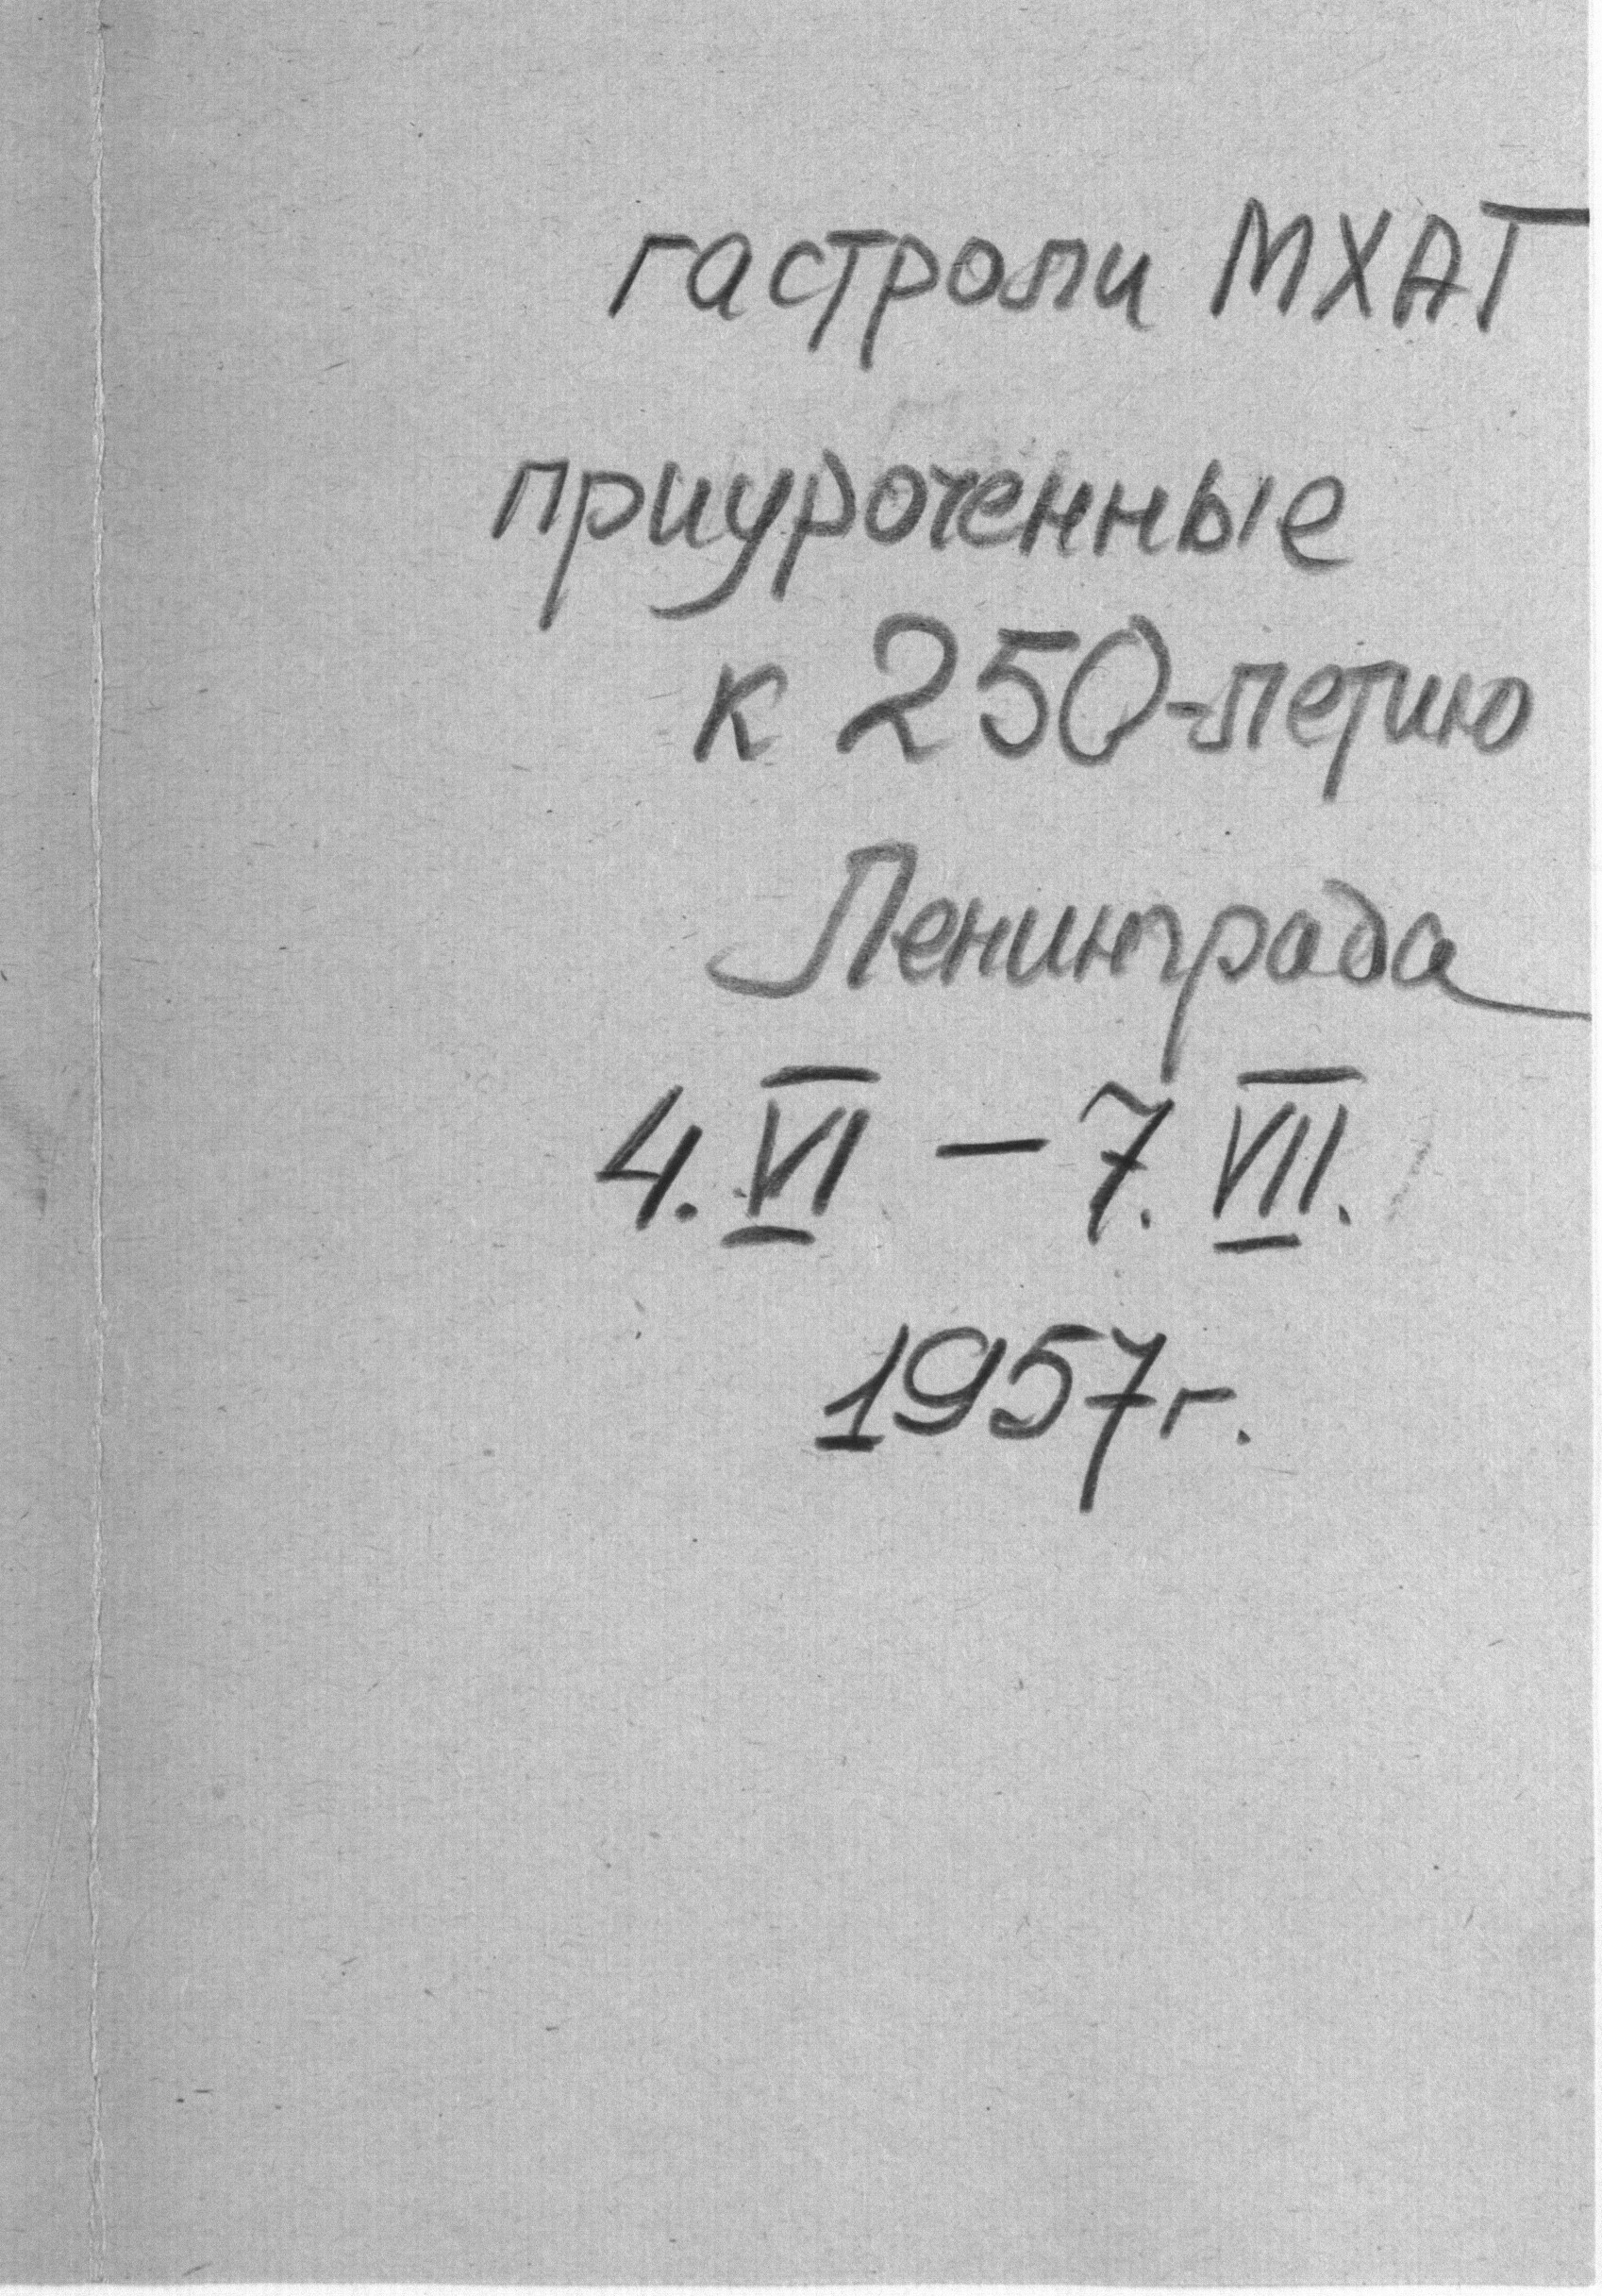 гастроли МХАТ
приуроченные
к 250-летию
Ленинграда
4. VI – 7. VII.
1957г.